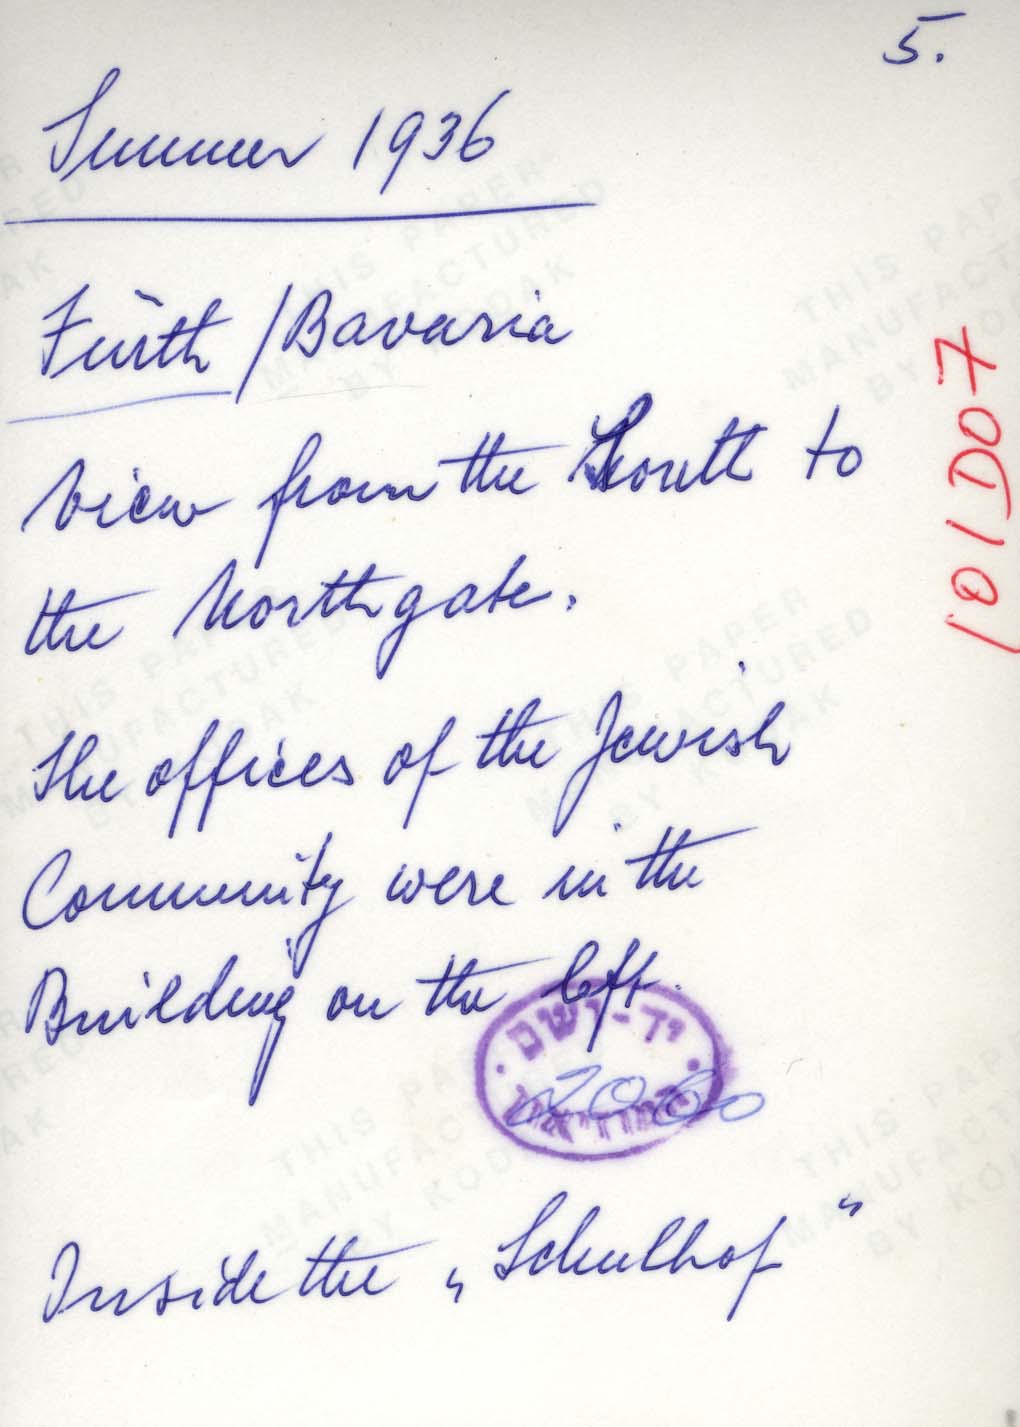 5.
Summer 1936
Fürth / Bavaria
View from the South to
the Northgate.
The offices of the Jewish
Community were in the
Building on the left.
יד-ושם
2060
Inside the „Schulhof"
101D07
THIS PAPER
MANUFACTURED
BY KODAK